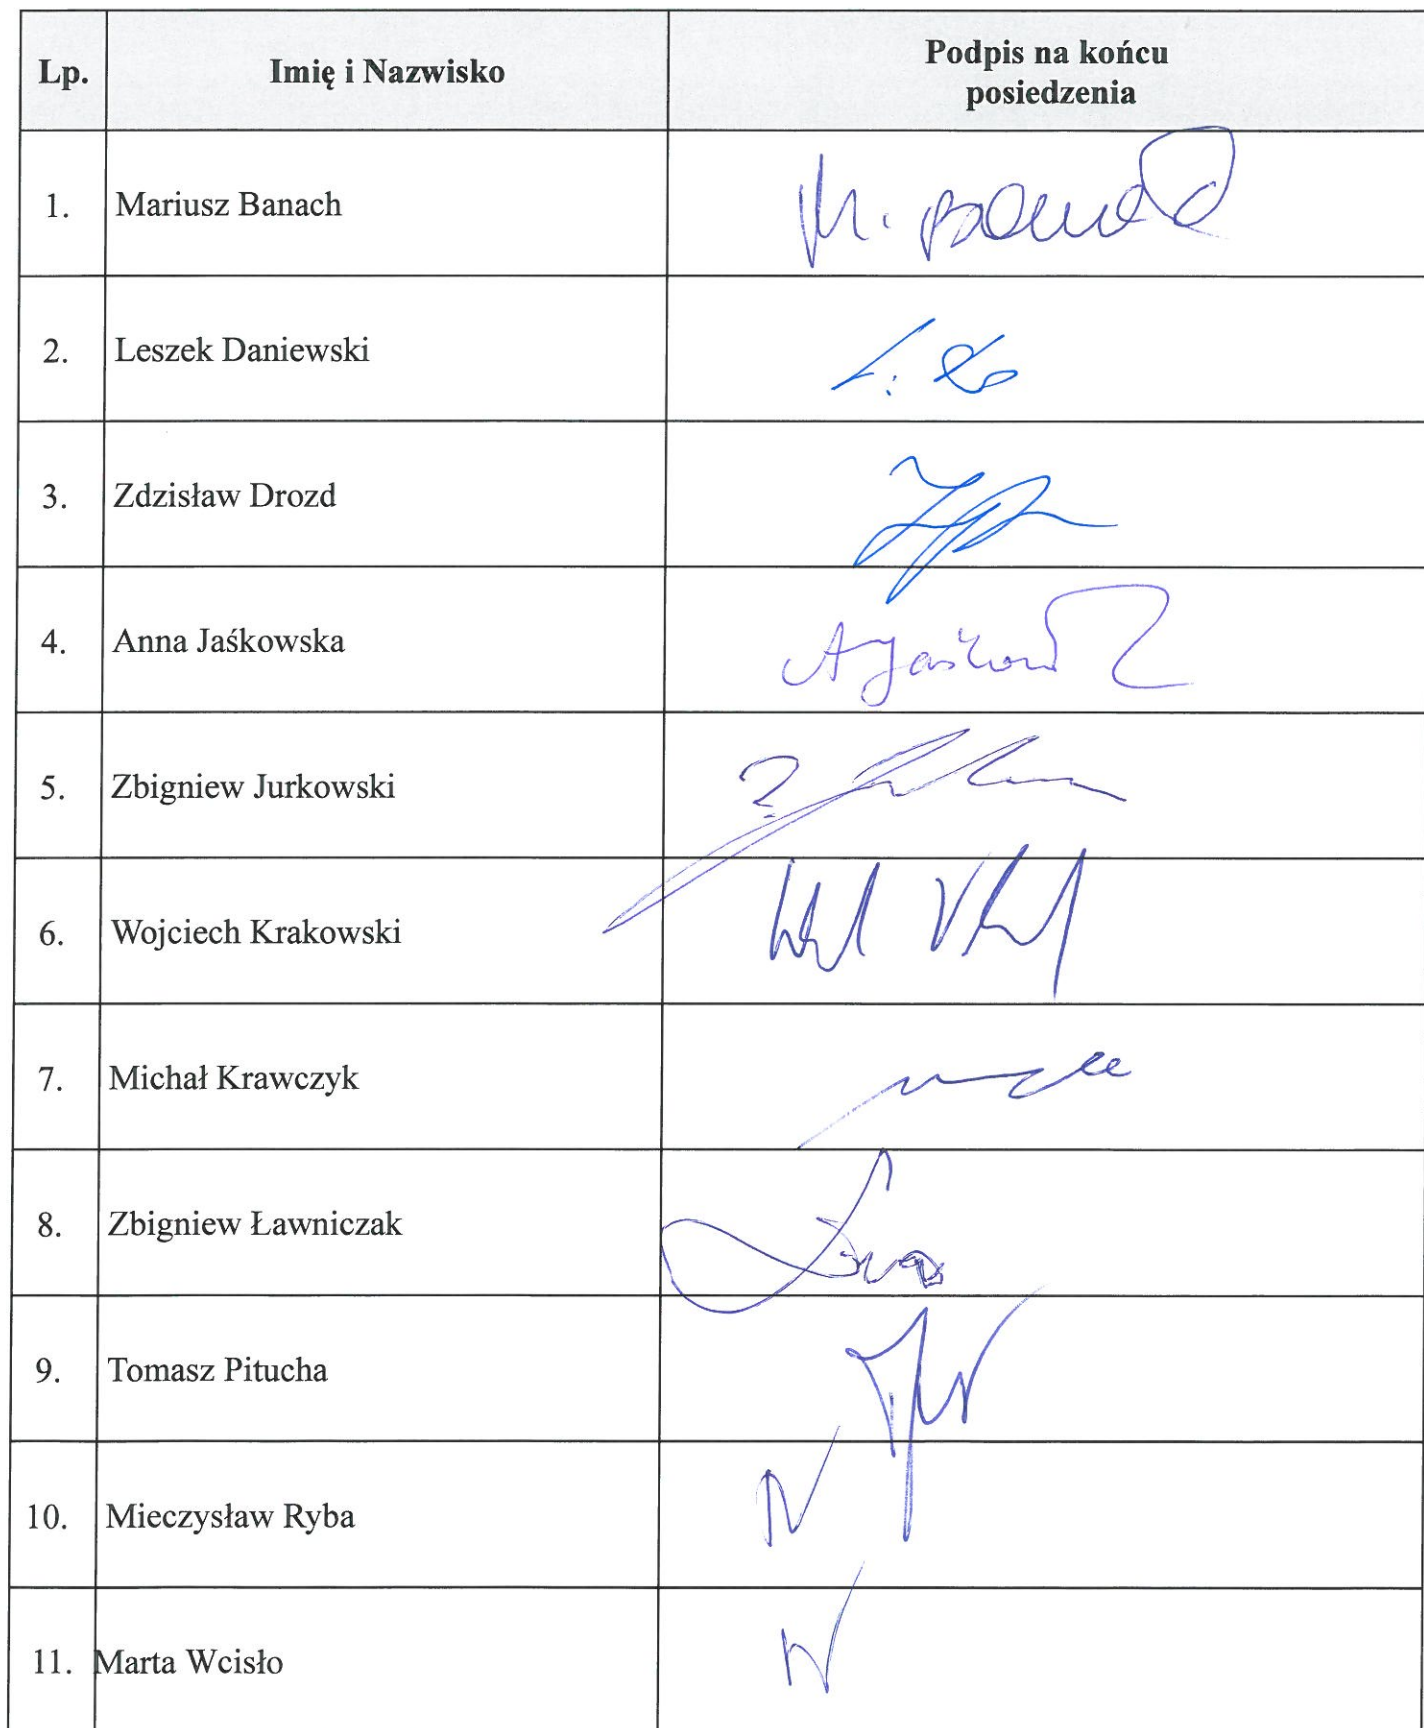 Lp.
Imię i Nazwisko
Podpis na końcu
posiedzenia
1.
Mariusz Banach
M. Banach
2.
Leszek Daniewski
3.
Zdzisław Drozd
4.
Anna Jaśkowska
5.
Zbigniew Jurkowski
6.
Wojciech Krakowski
7.
Michał Krawczyk
8.
Zbigniew Ławniczak
9.
Tomasz Pitucha
10.
Mieczysław Ryba
N
11.
Marta Wcisło
N